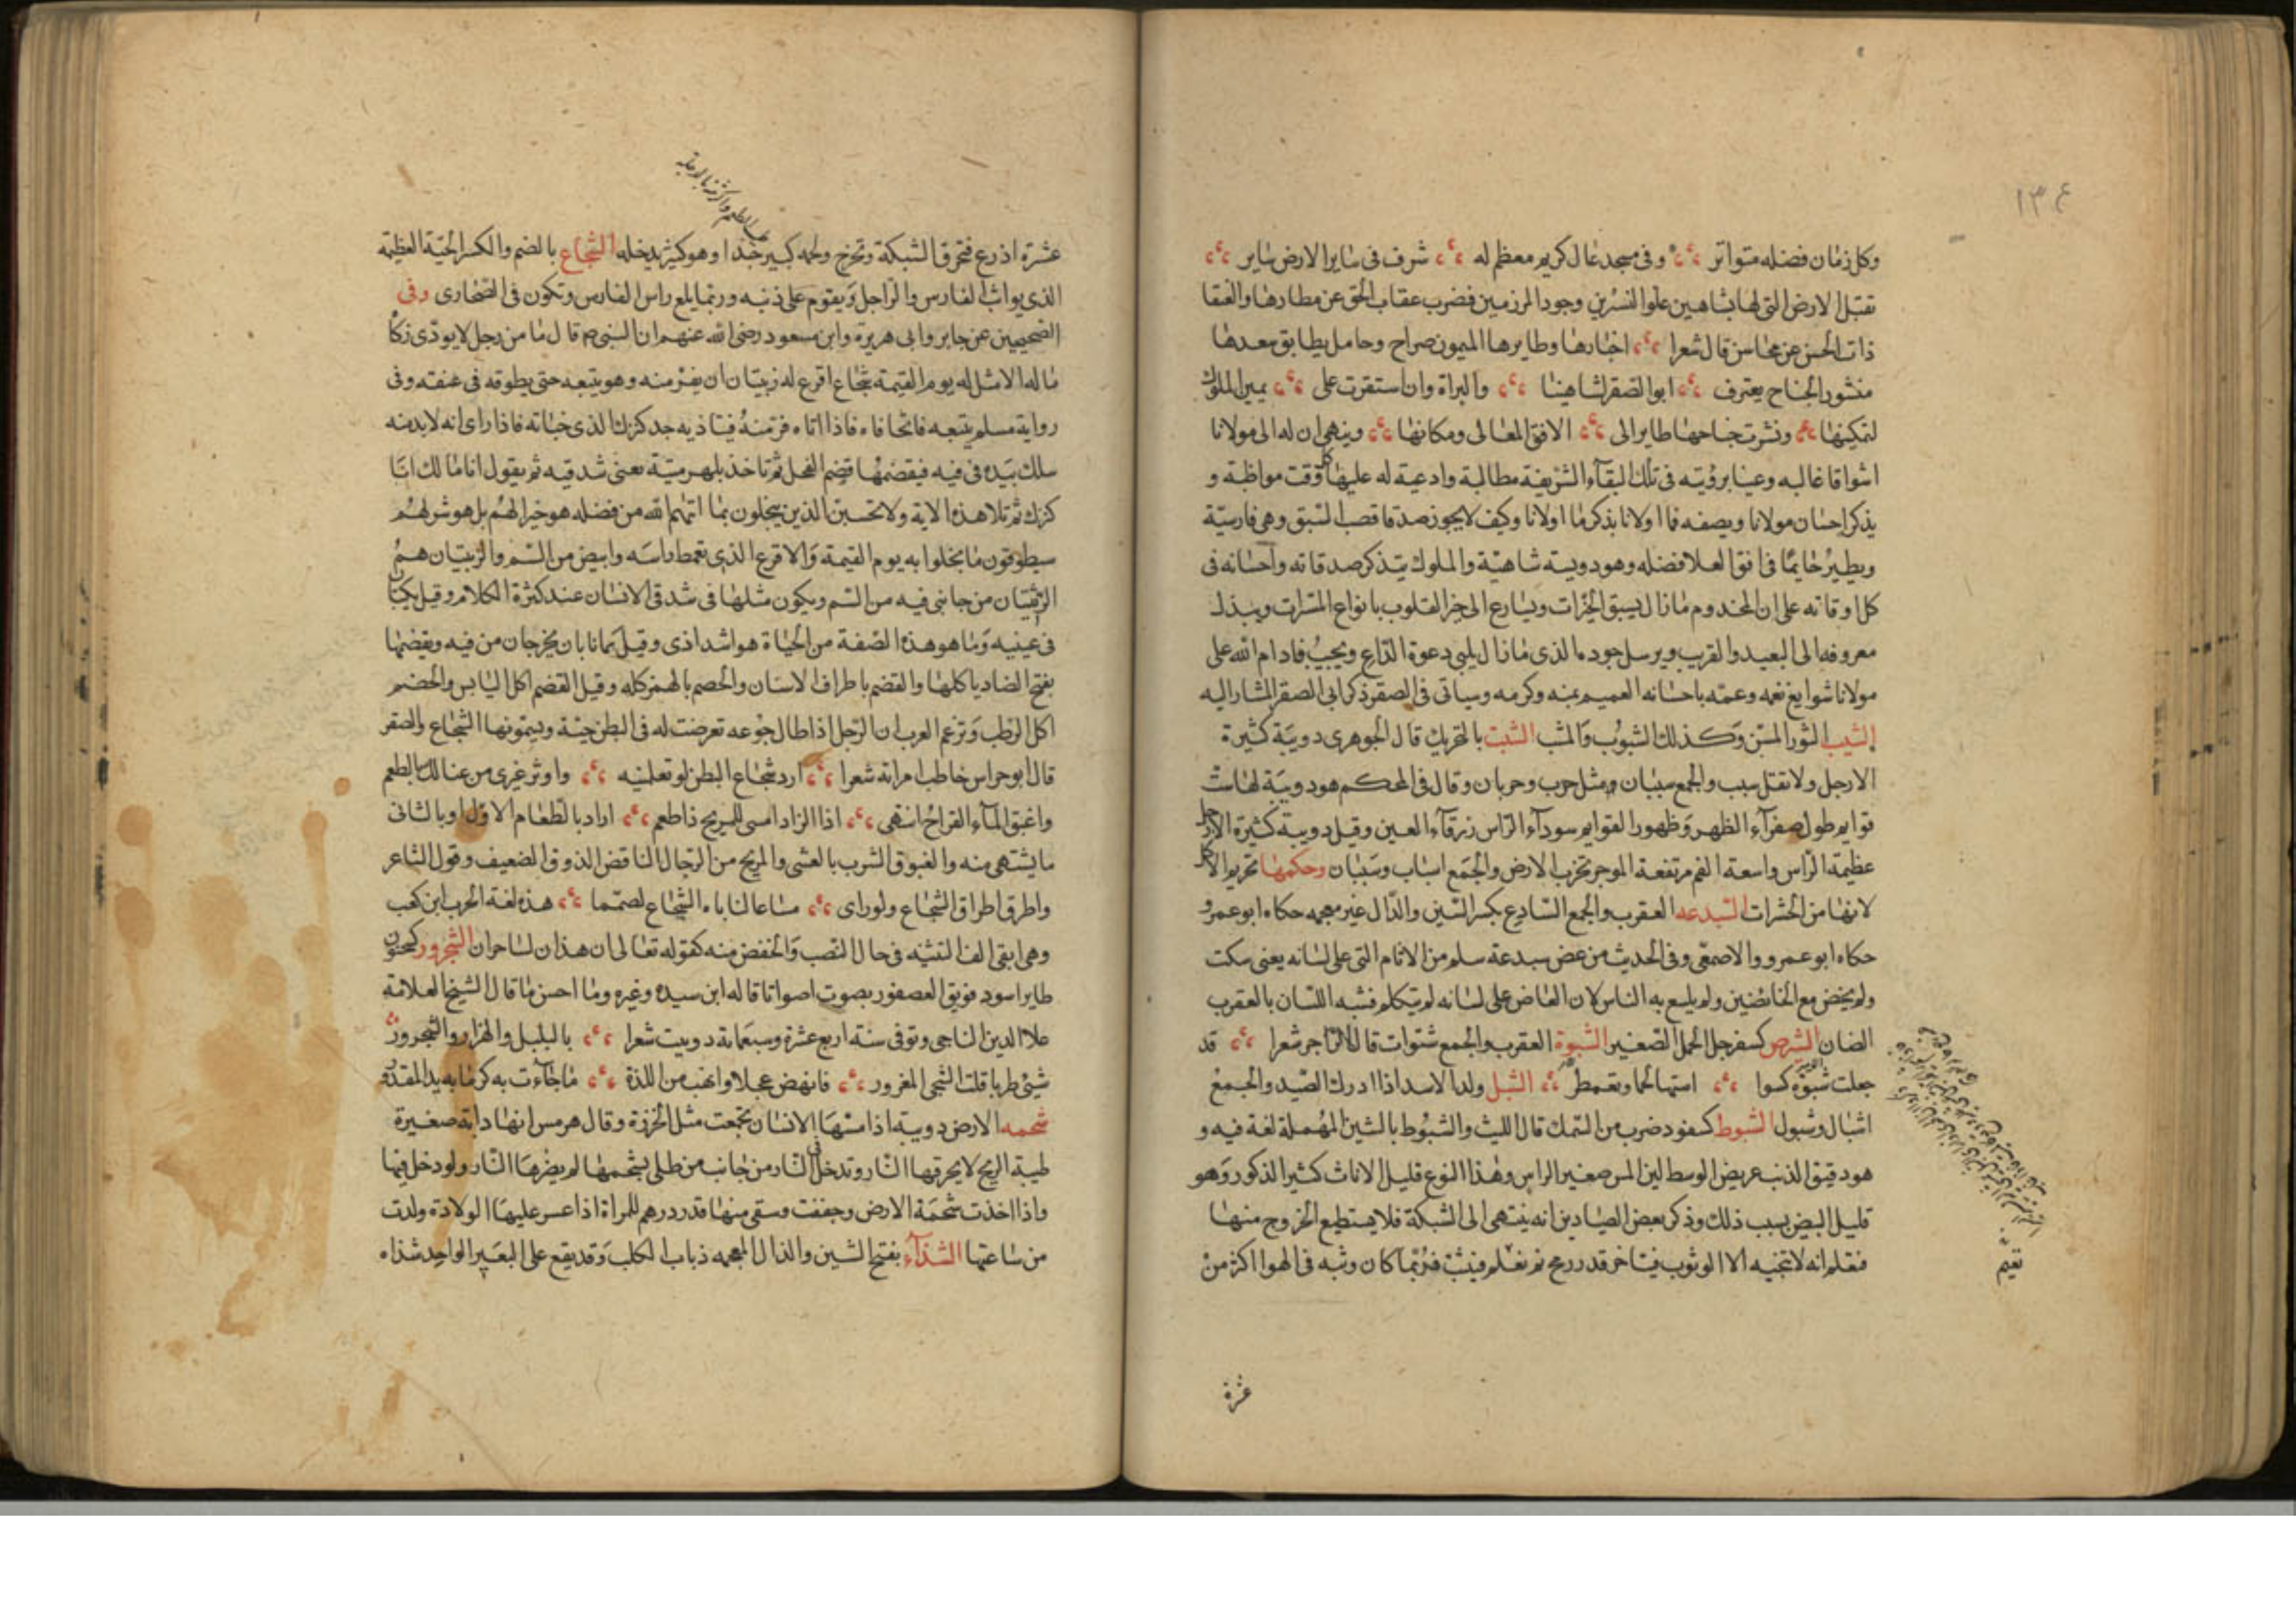 ١٣٤
وكل زمان فضله متواتر وفى مسجد عال كريم معظم له شرف فى ساير الارض ساير
تقبل الارض التى لها شاهين علوا النسرين وجود المرزمين فضرب عقاب الحق عن مطارها والعنقا
ذات الحسن عن محاسن قال شعرا اخبارها وطايرها الميمون صراح وحامل بطايق سعدها
منشور الجناح يعترف ابو الصقر لشاهينا والبراة وان استقرت على يمين الملوك
لتمكينها ونشرت جناحها طاير الى الافق المعالى ومكانها وينهى ان له الى مولانا
اشواقا غالبه وعينا برؤيته فى تلك البقاء الشريفة مطالبة وادعية له عليها كل وقت مواظبة و
يذكر احسان مولانا ويصفه فما اولانا بذكر ما اولانا وكيف لا يجوز صدقا قصب السبق وهى فارسيّة
ويطير حايمًا فى افق العلا فضله وهو دويسة شاهيّة والملوك يتذكر صدقاته واحسانه فى
كل اوقاته على ان المخدوم ما زال يسبق الخيرات ويسارع الى خير القلوب بانواع المسرات ويبذل
معروفه الى البعيد والقريب ويرسل جوده الذى ما زال يلبى دعوة الداع ويجيب فادام الله على
مولانا شوايغ نعمه وعمه باحسانه العميم بمنه وكرمه وسياتى فى الصقر ذكر ابى الصقر المشار اليه
الشبب الثور المسن وكذلك الشبوب والمشب الشبث بالتحريك قال الجوهرى دويبّة كثيرة
الارجل ولا تقل سبب والجمع سببان مثل حرب وحربان وقال فى المحكم هو دويبّة لها ست
قوايم طول صفراء الظهر وظهور القوايم سوداء الراس زرقاء العين وقيل دويبة كثيرة الارجل
عظيمة الراس واسعة الفم مرتفعة الموجر تخرب الارض والجمع اسباب وسببان وحكمها تحريم الاكل
لانها من الحشرات السبدعه العقرب والجمع السبادع بكسر السين والدال غير معجمه حكاه ابو عمرو
حكاه ابو عمرو والاصمعى وفى الحديث من عض سبدعة سلم من الاثام التى على لسانه يعنى سكت
ولم يخض مع الخائضين ولم يلسع به الناس لان العاض على لسانه لم يتكلم فشبه اللسان بالعقرب
الضان الشبرص كسفرجل الجمل الصغير الشبوة العقرب والجمع شتوات قال الراجز شعرا قد
جعلت شبوة استها لحما وتقمطر الشبل ولد الاسد اذا ادرك الصيد والجمع
اشبال وشبول الشبوط كسفود ضرب من السمك قال الليث والشبوط بالشين المهملة لغة فيه و
هو دقيق الذنب عريض الوسط لين المس صغير الراس وهذا النوع قليل الاناث كثير الذكور وهو
قليل البيض بسبب ذلك وذكر بعض الصيادين انه ينتهى الى الشبكة فلا يستطيع الخروج منها
فتعلم انه لا تنجيه الا الوثوب فيتاخر قدر رمح ثم فيثب فربما كان وثبه فى الهوا اكثر من
عشرة
عشرة اذرع فتخرق الشبكة وتخرج ولحمه كبير جدا وهو كثير بدجله الشجاع بالضم والكسر الحية العظيمة
الذى يواثب الفارس والراجل ويقوم على ذنبه وربما بلع راس الفارس وتكون فى الصحارى وفى
الصحيحين عن جابر وابى هريرة وابن مسعود رضى الله عنهم ان النبى ص قال ما من رجل لا يودى زكاة
ماله الا مثل له يوم القيمة شجاع اقرع له زبيتان ان يفر منه وهو يتبعه حتى يطوقه فى عنقه وفى
رواية مسلم يتبعه فاتحا فاه فاذا اتاه فر منه فيناديه جد كنزك الذى خباته فاذا راى انه لا بد منه
سلك بيده فى فيه فيقضمها قضم الفحل ثم تاخذ بلهزميّة يعنى شدقيه ثم يقول انا مالك انا
كنزك ثم تلا هذه الاية ولا تحسبن الذين يبخلون بما اتاهم الله من فضله هو خير الهم بل هو شر لهم
سيطوقون ما بخلوا به يوم القيمة والاقرع الذى تمعط راسه وابيض من السم والزبيتان هم
الزبيتان من جانبى فيه من السم ويكون مثلها فى شدقى الانسان عند كثرة الكلام وقيل نكتتان
فى عينيه وما هو هذه الصفة من الحياة هو اشد اذى وقيل نابان يخرجان من فيه ويقضمها
بفتح الضاد ياكلها والقضم باطراف الاسنان والخضم بالفم كله وقيل القضم اكل اليابس والخضم
اكل الرطب وتزعم العرب ان الرجل اذا طال جوعه تعرضت له فى البطن حيّة ويسمونها الشجاع والصقر
قال ابو خراس خاطب امراته شعرا ارد شجاع البطن لو تعلمينه واوثر غيرى من عيالك بالطعم
واغبق الماء القراح انتهى اذا الزاد امسى للمزلج ذا طعم اراد بالطعام الاول وبالثانى
ما يشتهى منه والغبوق الشرب بالعشى والمزلج من الرجال الناقض الذوق الضعيف وقول الشاعر
واطرق اطراق الشجاع ولو راى مساعا لناباه الشجاع لصمما هذه لغة الحرب ابن كعب
وهى ابقى الف التثنيه فى حال النصب والخفض منه كقوله تعالى ان هذان لساحران الشحرور كسحنون
طاير اسود فويق العصفور يصوت اصواتا قاله ابن سيده وغيره وما احسن ما قال الشيخ العلامة
علا الدين الناجى وتوفى سنة اربع عشرة وسبعماية دوبيت شعرا بالبلبل والهزار والشحرور
شئى طربا قلت الشجى المغرور فانهض عجلا وانهب من اللذة ما جاءت به كرما به يد المقدور
شحمه الارض دويبة اذا مسها الانسان تجمعت مثل الخرزة وقال هرمس انها دابة صغيرة
طيبة الريح لا يحرقها النار وتدخل فى النار من جانب من طلى بشحمها لم يضرها النار ولو دخل فيها
واذا اخذت شحمة الارض وجففت وسقى منها قدر درهم للمراة اذا عسر عليها الولادة ولدت
من ساعتها الشذاء بفتح الشين والذال المعجمه ذباب الكلب وقد يقع على البعير الواحد شذاه